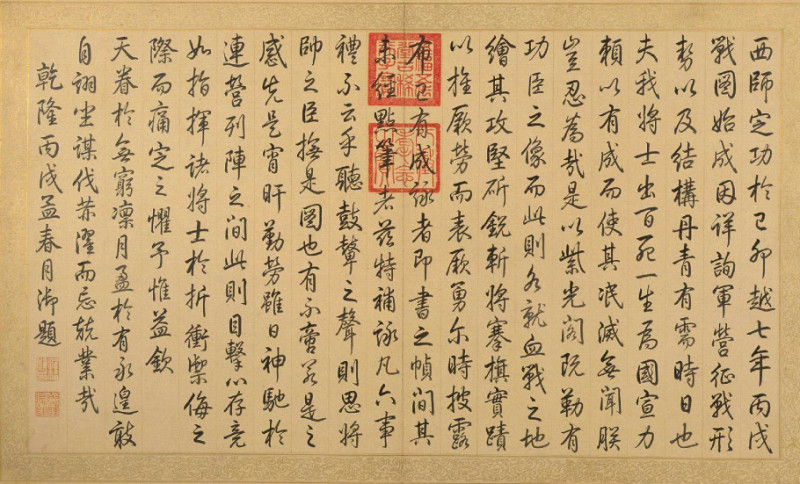 西師定功於己卯越七年丙戌
戰圖始成因詳詢軍營征戰形
勢以及結構丹青有需時日也
夫我將士出百死一生為國宣力
賴以有成而使其泯滅無聞朕
豈忍為哉是以紫光閣既勒有
功臣之像而此則各就血戰之地
繪其攻堅斫銳斬將搴旗實蹟
以旌厥勞而表厥勇尔時披露
布已有成詠者即書之幀間其
未經點筆者茲特補詠凡六事
禮不云乎聽鼓鼙之聲則思將
帥之臣撫是圖也有不啻若是之
感先是宵旰勤勞雖日神馳於
連營列陣之間此則目擊心存竟
如指揮諸將士於折衝禦侮之
際而痛定之懼予惟益欽
天眷於無窮凜月盈於有永遑敢
自詡坐謀伐赫濯而忘兢業哉
乾隆丙戌孟春月御題